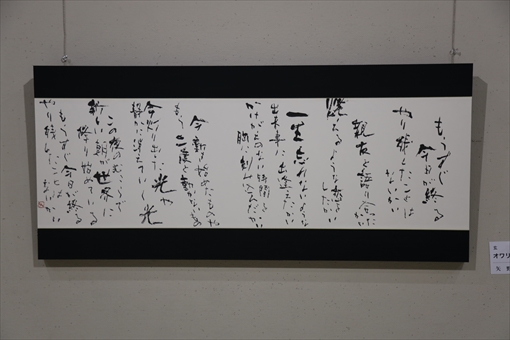 もうすぐ
今日が終る
やり残したことは
ないかい
親友と語り合ったかい
燃えるような恋を
したかい
一生忘れないような
出来事に出逢えたかい
かけがえのない時間を
胸に刻み込んだかい
今動き始めたものや
もう二度と動かないもの
今灯り出した光や
静かに消えていく光
この夜の向こうで
新しい朝が世界に
降り始めている
もうすぐ今日が終る
やり残したことは
ないかい
オワリ